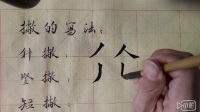 撇的写法：
斜撇：
竖撇：
短撇：